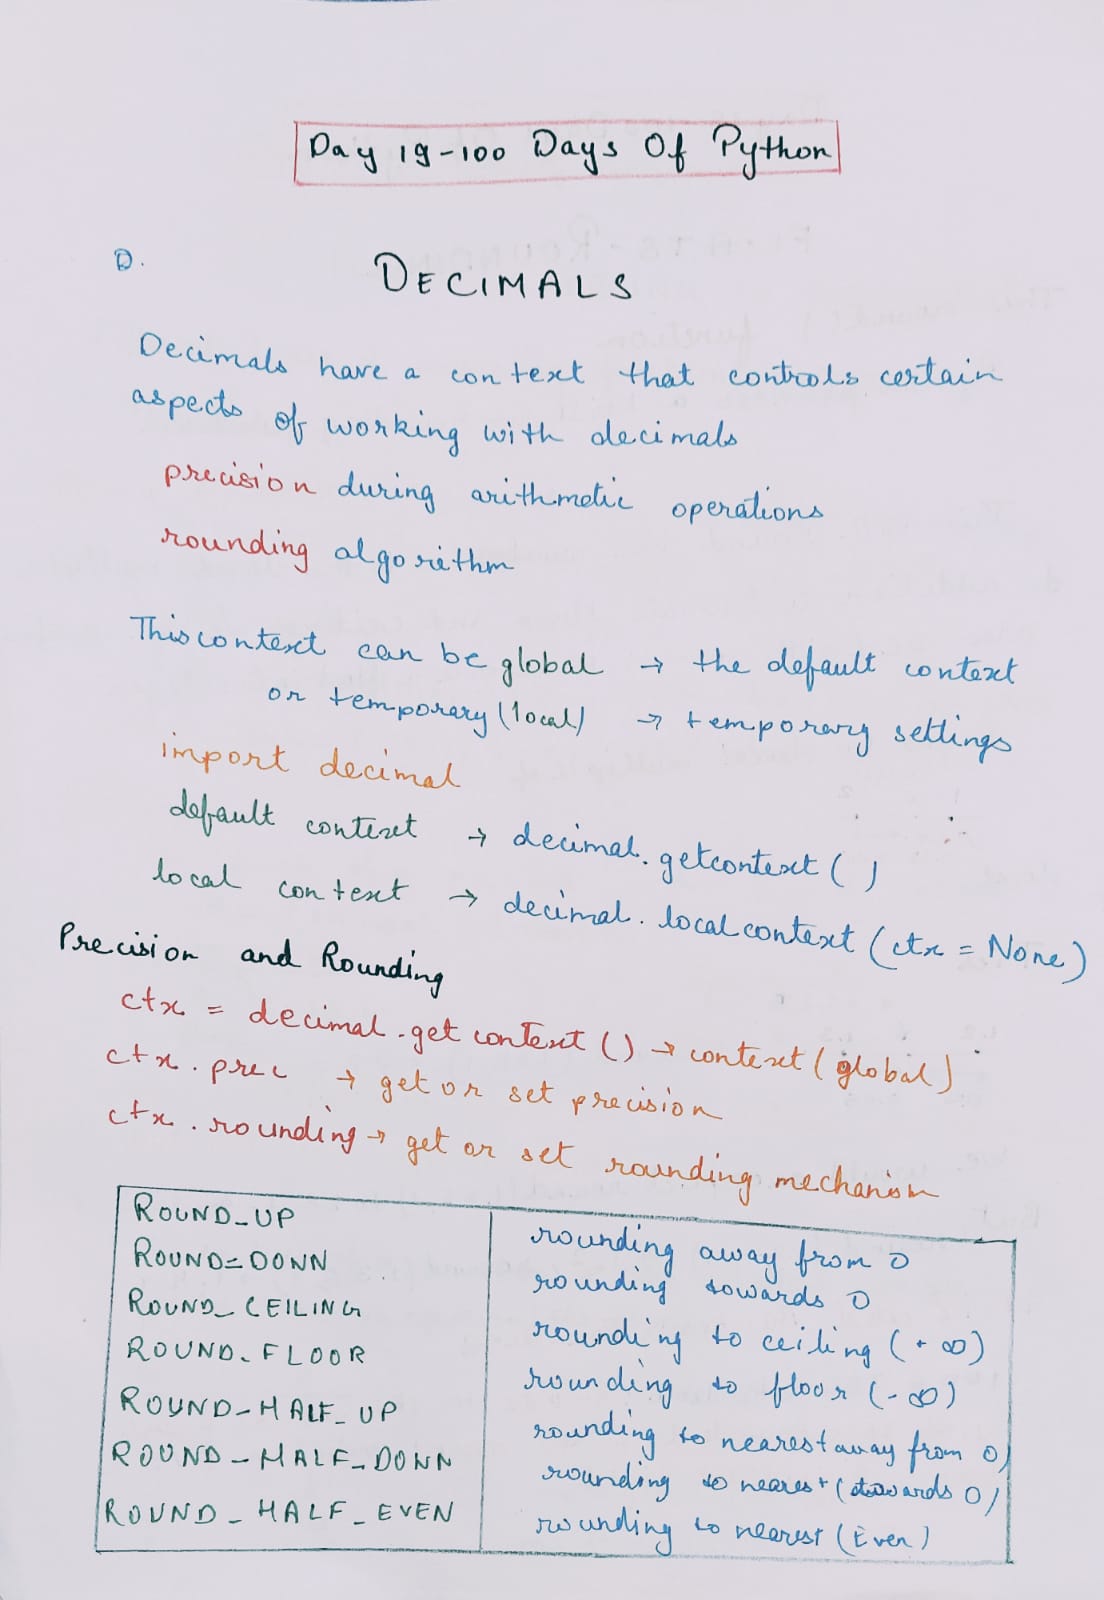 Day 19-100 Days Of Python
D.
DECIMALS
Decimals have a context that controls certain
aspects of working with decimals
precision during arithmetic operations
rounding algorithm
This context can be global → the default context
or temporary (local) → temporary settings
import decimal
default context → decimal.getcontext()
local context → decimal.localcontext(ctx = None)
Precision and Rounding
ctx = decimal.getcontext() → context (global)
ctx.prec → get or set precision
ctx.rounding → get or set rounding mechanism
ROUND_UP rounding away from 0
ROUND_DOWN rounding towards 0
ROUND_CEILING rounding to ceiling (+ ∞)
ROUND_FLOOR rounding to floor (- ∞)
ROUND_HALF_UP rounding to nearest away from 0)
ROUND_HALF_DOWN rounding to nearest (towards 0)
ROUND_HALF_EVEN rounding to nearest (Even)